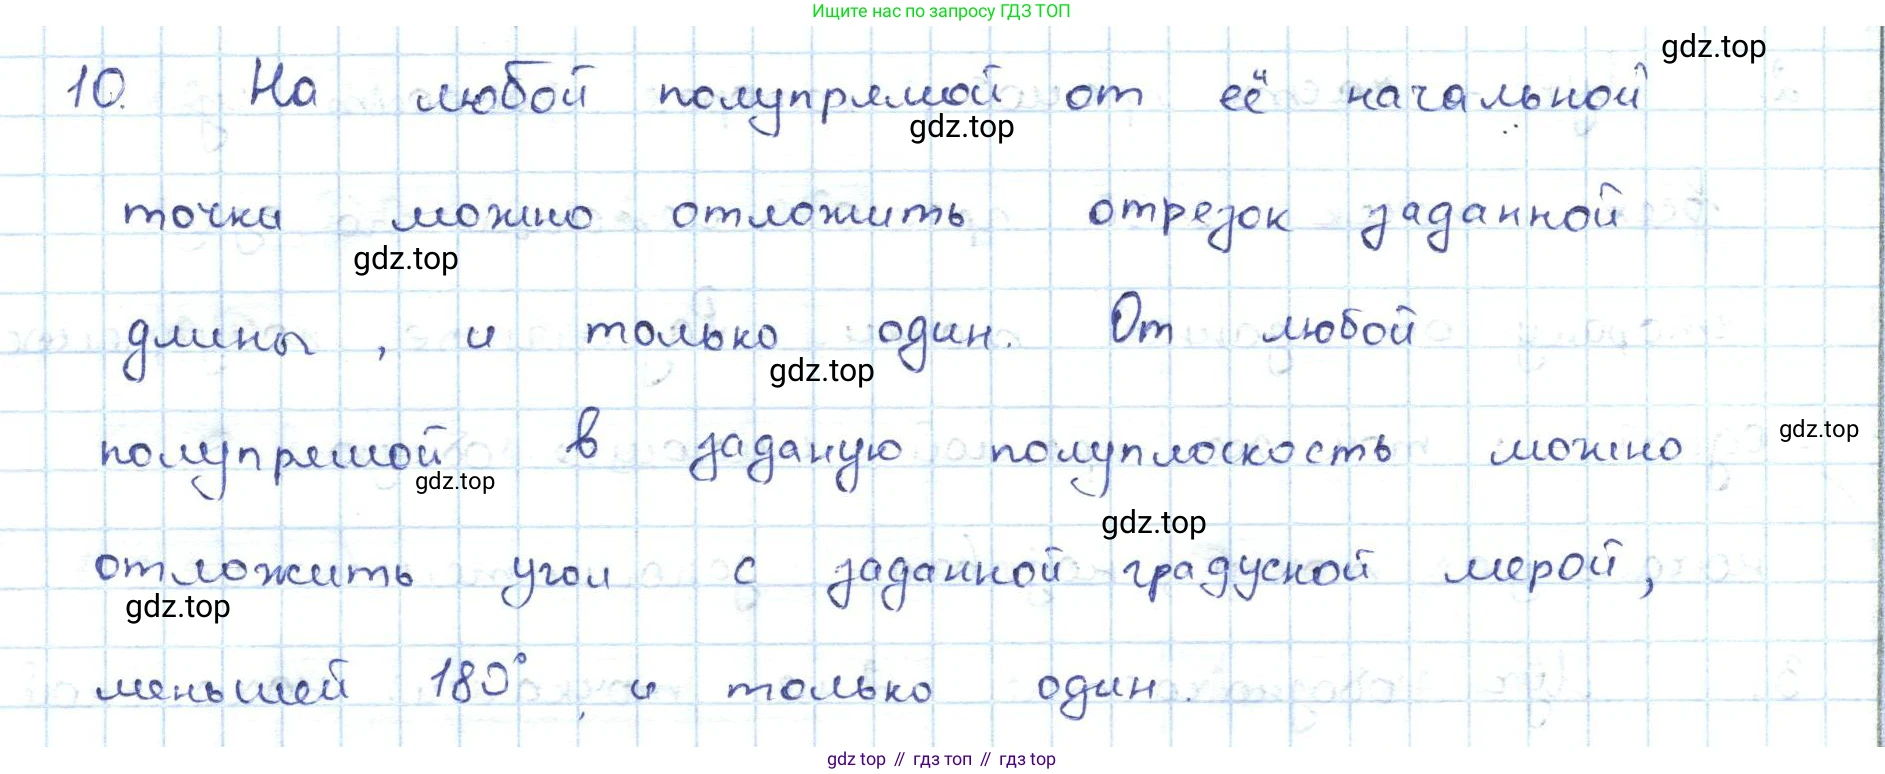 Ищите нас по запросу ГДЗ ТОП
gdz.top
10. На любой полупрямой от её начальной
gdz.top
точки можно отложить отрезок заданной
gdz.top
длины, и только один. От любой
gdz.top
полупрямой в заданую полуплоскость можно
gdz.top
gdz.top
gdz.top
отложить угол с заданной градусной мерой,
gdz.top
меньшей 180°, и только один.
gdz top // гдз топ // гдз top